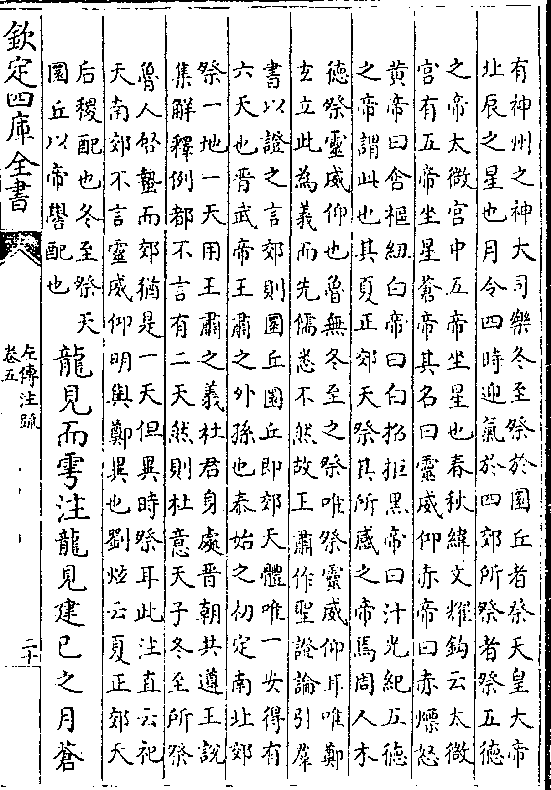 有神州之神大司樂冬至祭於圜丘者祭天皇大帝
北辰之星也月令四時迎氣於四郊所祭者祭五德
之帝太微宫中五帝坐星也春秋緯文耀鈎云太微
宫有五帝坐星蒼帝其名曰靈威仰赤帝曰赤熛怒
黄帝曰含樞紐白帝曰白招拒黑帝曰汁光紀五德
之帝謂此也其夏正郊天祭其所感之帝焉周人木
德祭靈威仰也魯無冬至之祭唯祭靈威仰耳唯鄭
𤣥立此為義而先儒悉不然故王肅作聖證論引羣
書以證之言郊則圜丘圜丘即郊天體唯一安得有
六天也晉武帝王肅之外孫也泰始之初定南北郊
祭一地一天用王肅之義杜君身處晉朝共遵王說
集解釋例都不言有二天然則杜意天子冬至所祭
魯人啓蟄而郊猶是一天但異時祭耳此注直云祀
天南郊不言靈威仰明與鄭異也劉炫云夏正郊天
后稷配也冬至祭天
圜丘以帝嚳配也
龍見而雩注龍見建巳之月蒼
欽定四庫全書
左傳注疏
卷五
二十